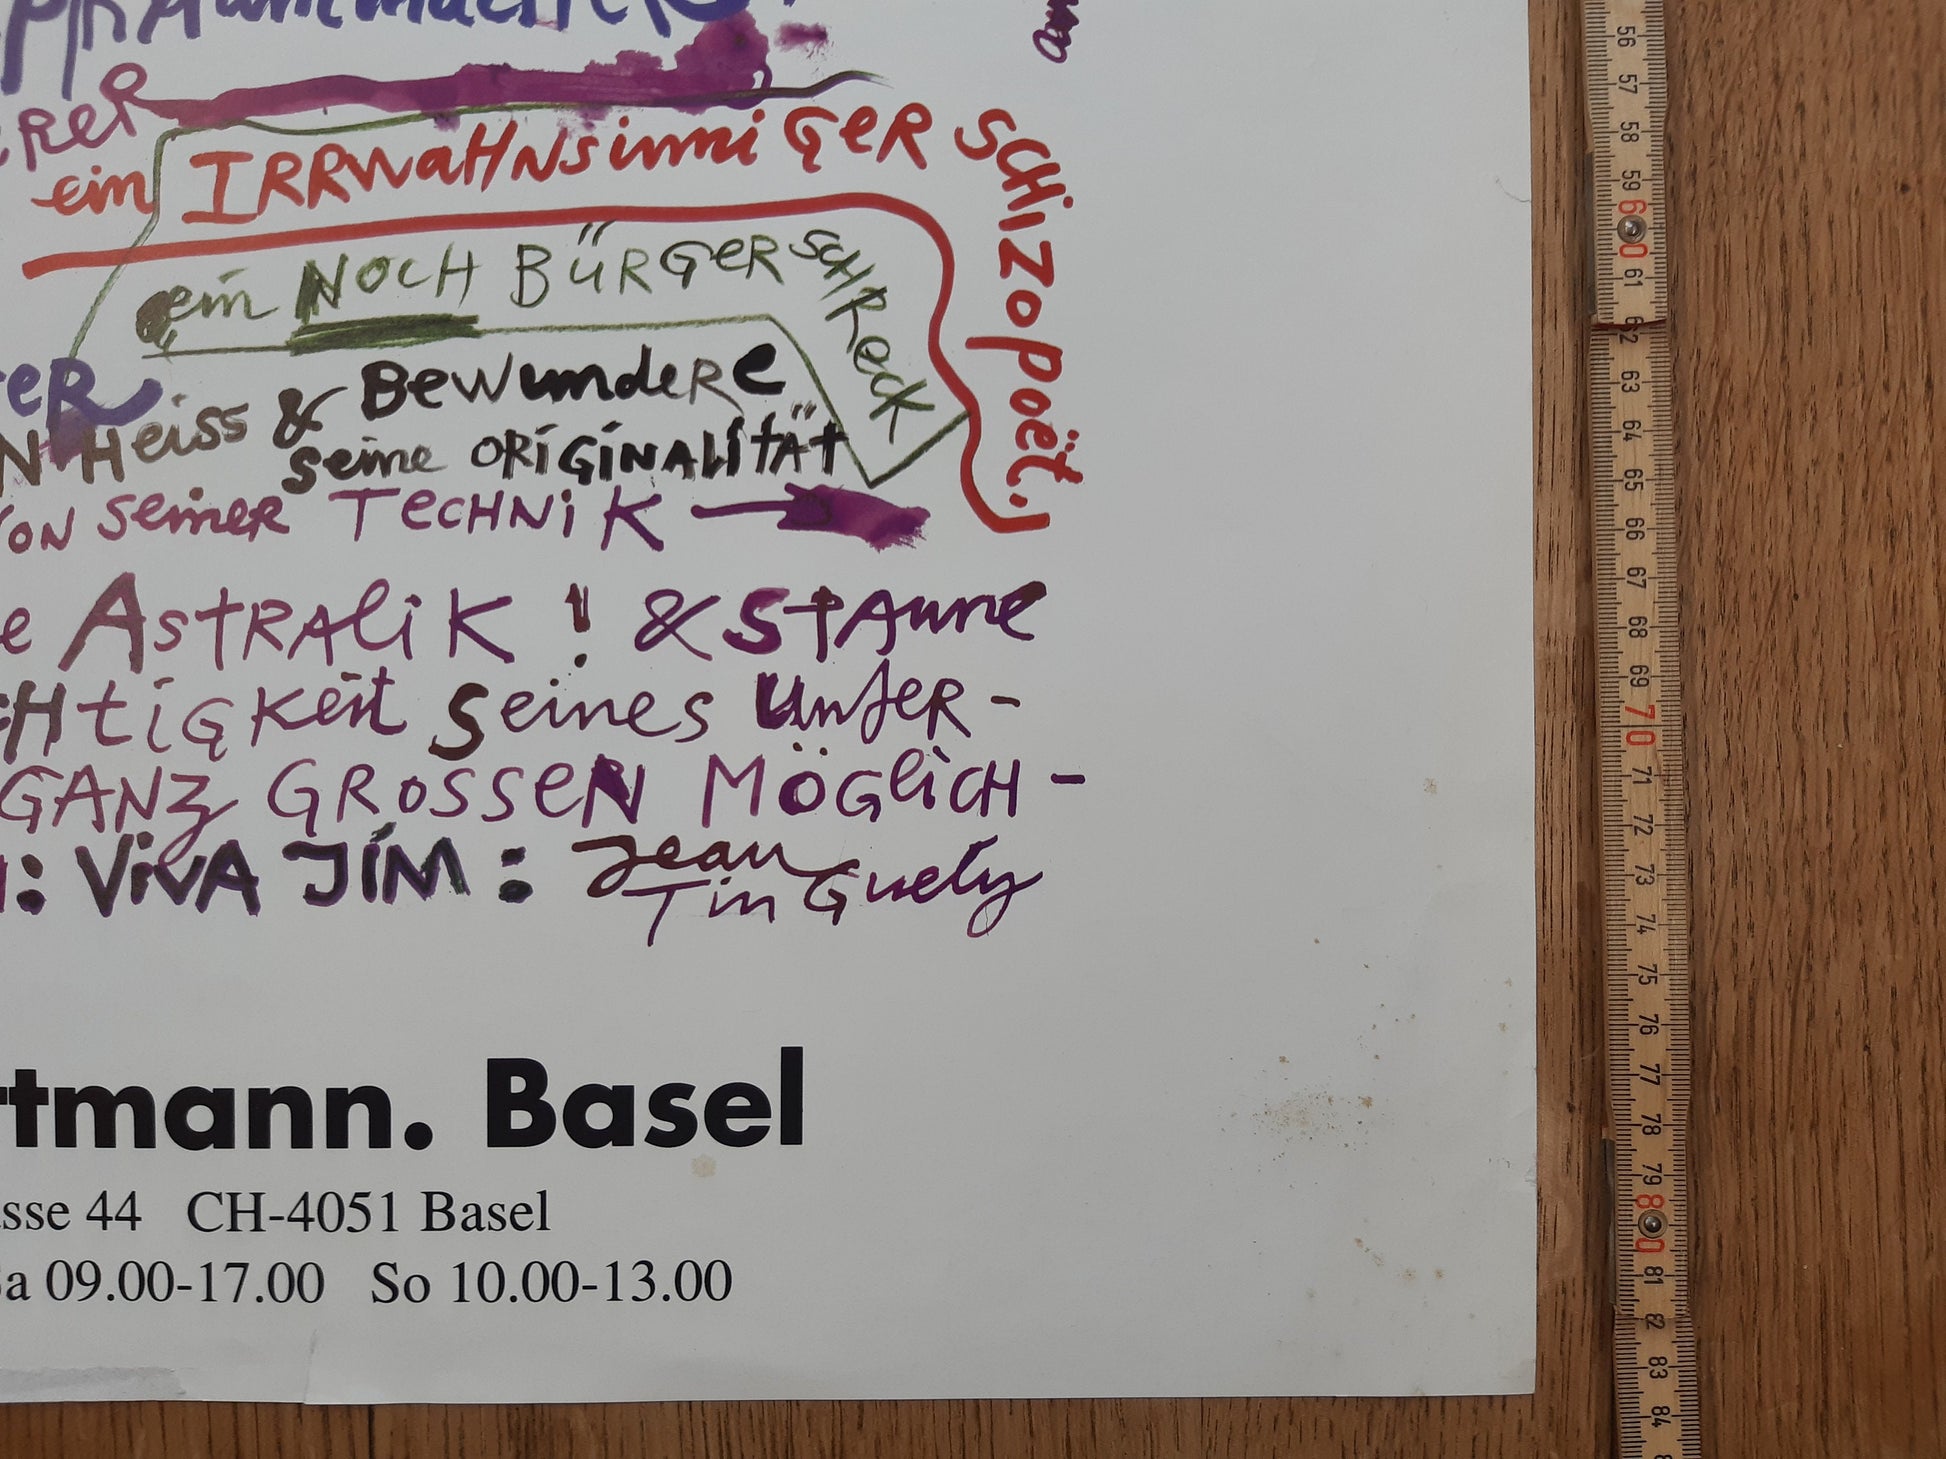 ein IRRWAHNSiNNiGER SCHiZOPOËt.
ein NOCH BÜRGERSCHRECK
HEiSS & BEWUNDERE
SEiNE ORiGiNALiTÄT
VON SEiNER TECHNiK
ASTRALiK ! & STAUNE
HTiGKEiT SEiNES UNTER-
GANZ GROSSEN MÖGLiCH-
: ViVA JiM : Jean
TinGuely
tmann. Basel
sse 44 CH-4051 Basel
a 09.00-17.00 So 10.00-13.00
56
57
58
59
60
61
62
63
64
65
66
67
68
69
70
71
72
73
74
75
76
77
78
79
80
81
82
83
84